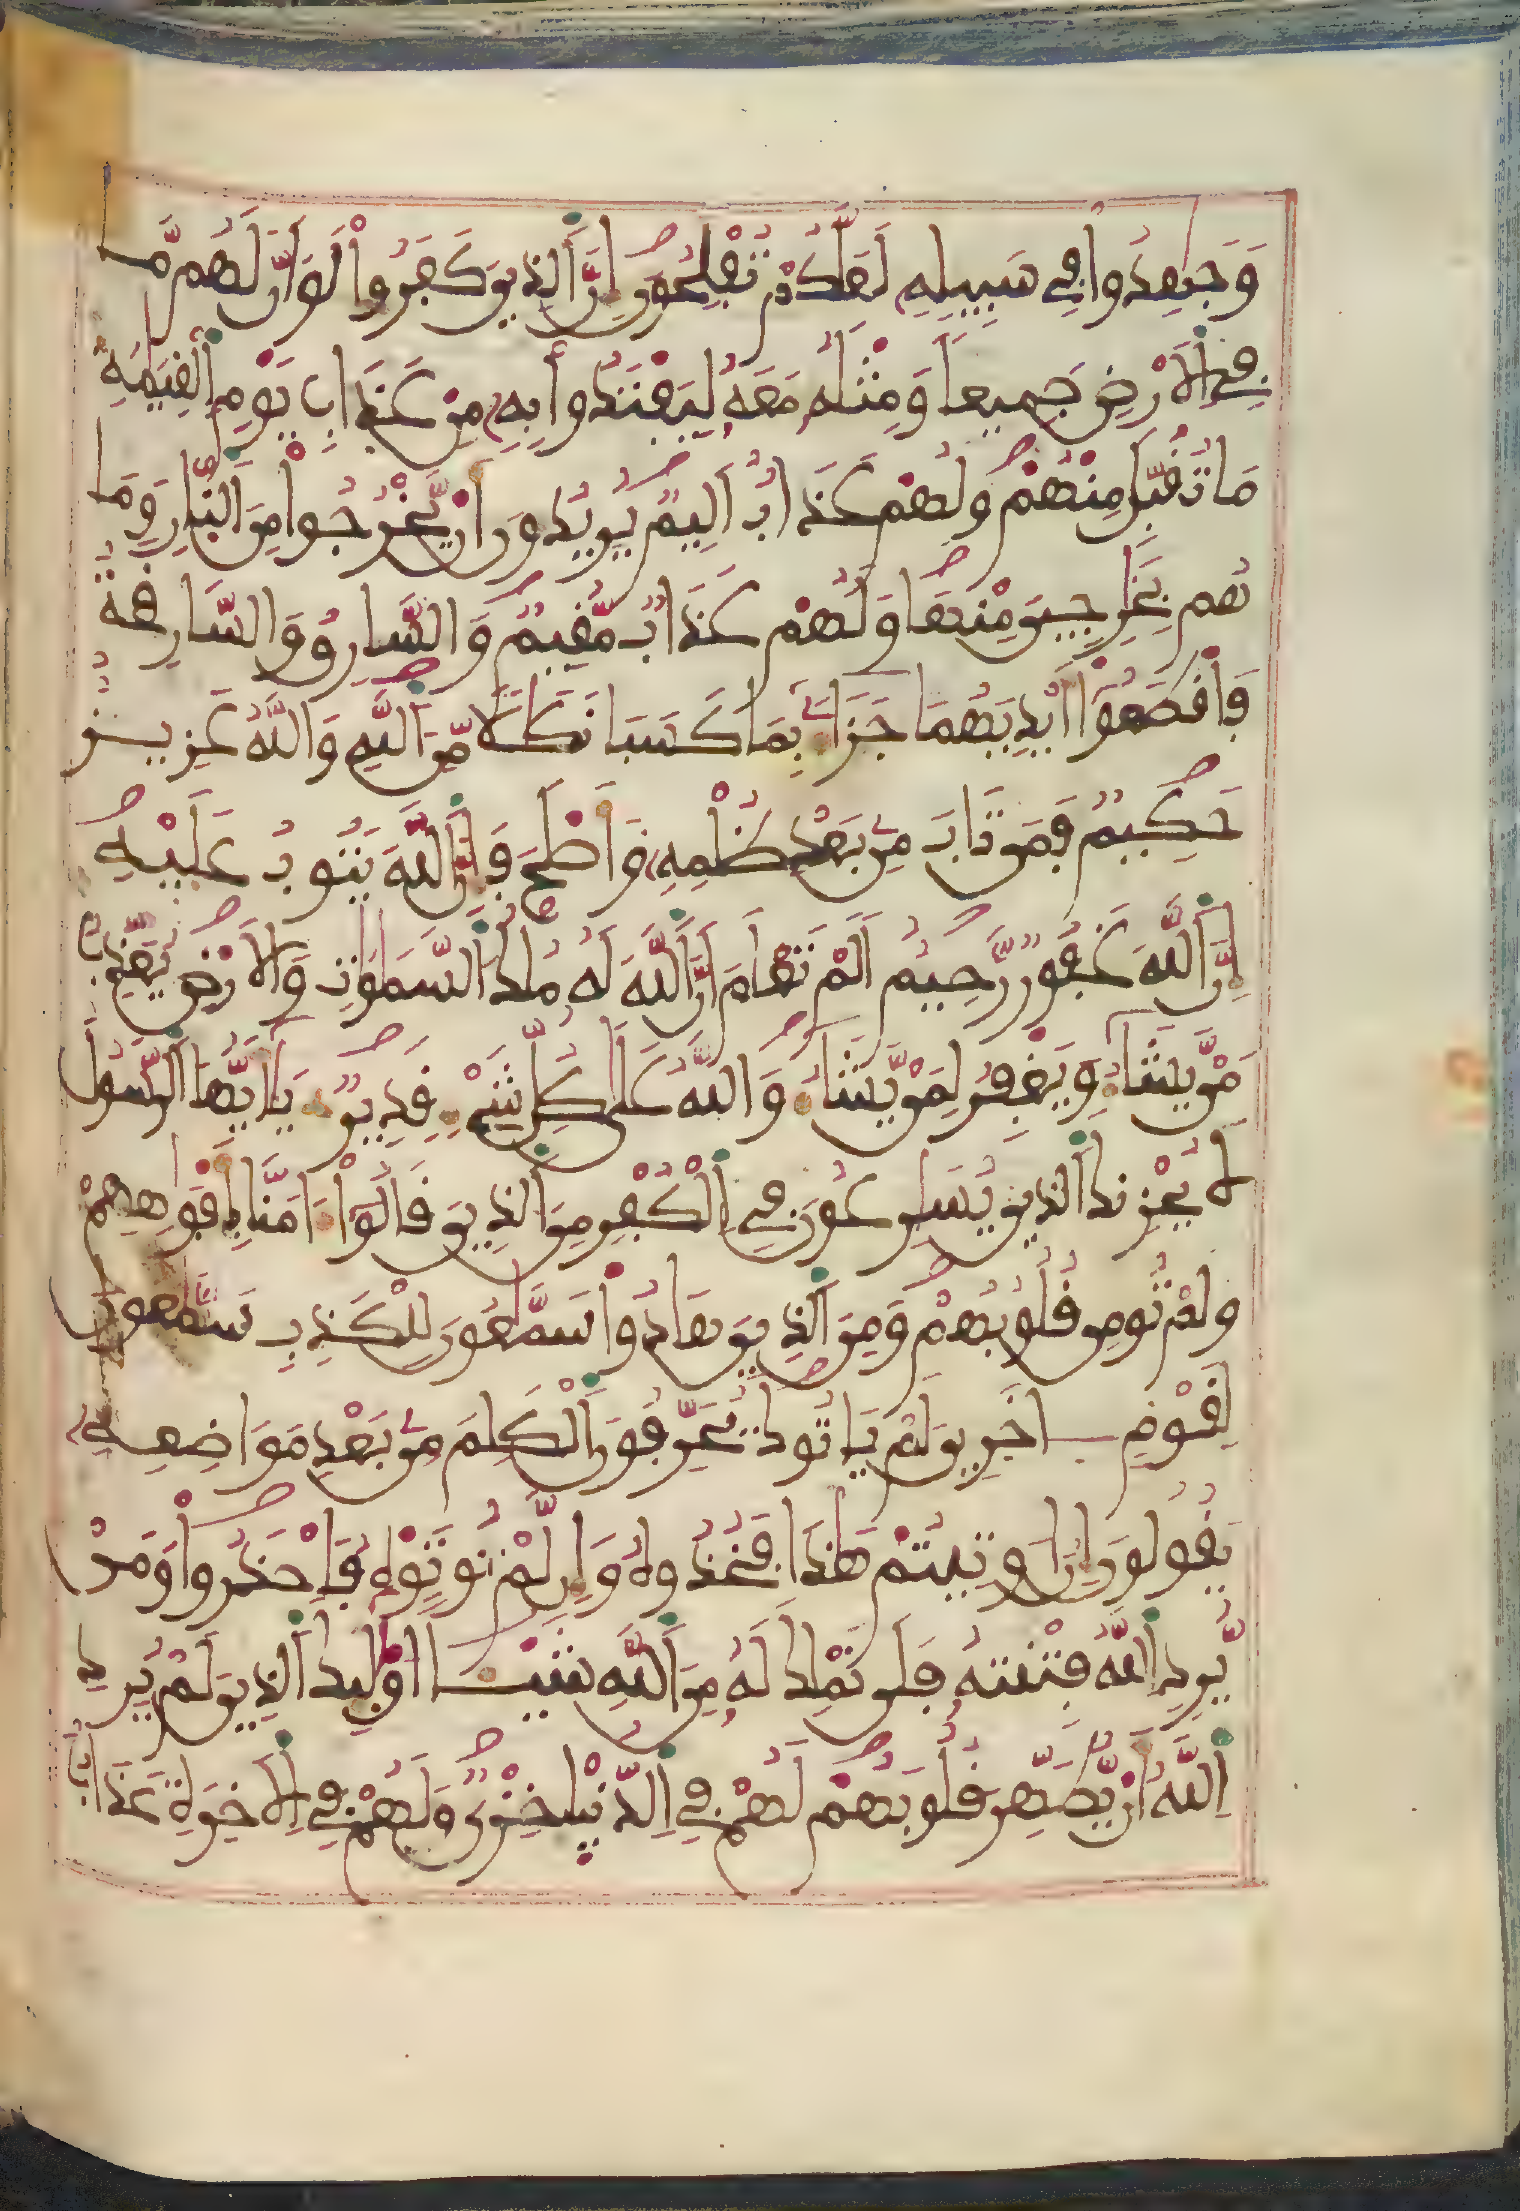 وَجَٰهِدُوا۟ فِے سَبِيلِهِۦ لَعَلَّكُمْ تُفْلِحُونَ إِنَّ ٱلذِينَ كَفَرُوا۟ لَوَ اَنَّ لَهُم مَّا
فِے اِ۬لَارْضِ جَمِيعاً وَمِثْلَهُۥ مَعَهُۥ لِيَفْتَدُوا۟ بِهِۦ مِنْ عَذَابِ يَوْمِ اِ۬لْقِيَٰمَةِ
مَا تُقُبِّلَ مِنْهُمْ وَلَهُمْ عَذَابٌ اَلِيمٌ يُرِيدُونَ أَنْ يَّخْرُجُوا۟ مِنَ اَ۬لنّ۪ارِ وَمَا
هُم بِخَٰرِجِينَ مِنْهَا وَلَهُمْ عَذَابٌ مُّقِيمٌ وَالسَّارِقُ وَالسَّارِقَةُ
فَاقْطَعُوٓا۟ أَيْدِيَهُمَا جَزَآءَۢ بِمَا كَسَبَا نَكَٰلاً مِّنَ اَ۬للَّهِ وَاللَّهُ عَزِيزٌ
حَكِيمٌ فَمَن تَابَ مِنۢ بَعْدِ ظُلْمِهِۦ وَأَصْلَحَ فَإِنَّ اَ۬للَّهَ يَتُوبُ عَلَيْهِ
إِنَّ اَ۬للَّهَ غَفُورٌ رَّحِيمٌ اَلَمْ تَعْلَمَ اَنَّ اَ۬للَّهَ لَهُۥ مُلْكُ اُ۬لسَّمَٰوَٰتِ وَالَارْضِ يُعَذِّبُ
مَنْ يَّشَآءُ وَيَغْفِرُ لِمَنْ يَّشَآءُ وَاللَّهُ عَلَىٰ كُلِّ شَےْءٍ قَدِيرٌ يَٰٓأَيُّهَا اَ۬لرَّسُولُ
لَا يُحْزِنكَ اَ۬لذِينَ يُسَٰرِعُونَ فِے اِ۬لْكُفْرِ مِنَ اَ۬لذِينَ قَالُوٓا۟ ءَامَنَّا بِأَفْوَٰهِهِمْ
وَلَمْ تُومِن قُلُوبُهُمْ وَمِنَ اَ۬لذِينَ هَادُوا۟ سَمَّٰعُونَ لِلْكَذِبِ سَمَّٰعُونَ
لِقَوْمٍ ـ اخَرِينَ لَمْ يَاتُوكَ يُحَرِّفُونَ اَ۬لْكَلِمَ مِنۢ بَعْدِ مَوَاضِعِهِۦ
يَقُولُونَ إِنُ ا۟وتِيتُمْ هَٰذَا فَخُذُوهُ وَإِن لَّمْ تُوتَوْهُ فَاحْذَرُوا۟ وَمَنْ
يُّرِدِ اِ۬للَّهُ فِتْنَتَهُۥ فَلَن تَمْلِكَ لَهُۥ مِنَ اَ۬للَّهِ شَيْـًٔا ا۟وْلَٰٓئِكَ اَ۬لذِينَ لَمْ يُرِدِ
اِ۬للَّهُ أَنْ يُّطَهِّرَ قُلُوبَهُمْ لَهُمْ فِے اِ۬لدُّنْي۪ا خِزْيٌ وَلَهُمْ فِے اِ۬لَاخِرَةِ عَذَابٌ